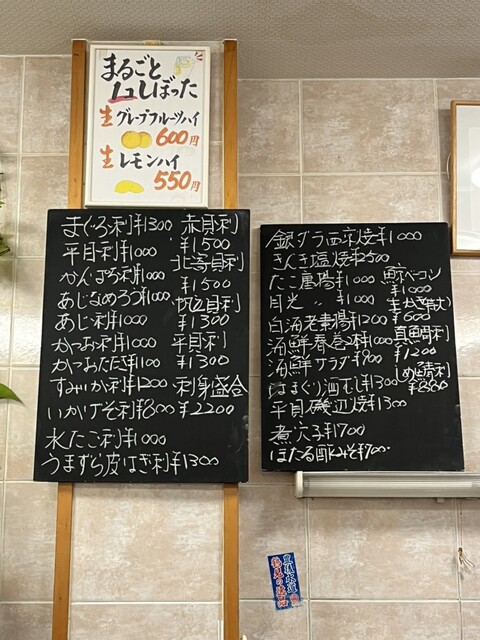 まるごと
1コしぼった
生グレープフルーツハイ
600円
生レモンハイ
550円
まぐろ刺¥1300
平目刺¥1000
かんぱち刺¥1000
あじなめろう¥1000
あじ刺¥1000
かつお刺¥1000
かつおたたき¥1100
すみいか刺¥1200
いかげそ刺¥800
水たこ刺¥1000
うまずら皮はぎ刺¥1300
赤貝刺
¥1500
北寄貝刺
¥1500
帆立貝刺
¥1300
平貝刺
¥1300
刺身盛合
¥2200
銀ダラ西京焼¥1000
きんき塩焼¥2500
たこ唐揚¥1000
目光 〃 ¥1000
白海老素揚¥1200
海鮮春巻2本¥1000
海鮮サラダ¥900
はまぐり酒むし¥1300
平貝磯辺焼¥1300
煮穴子¥1700
ほたる酢みそ¥700
鯨ベーコン
¥1000
¥600
真鯛刺
¥1200
〆鯖刺
¥880
豊後水道